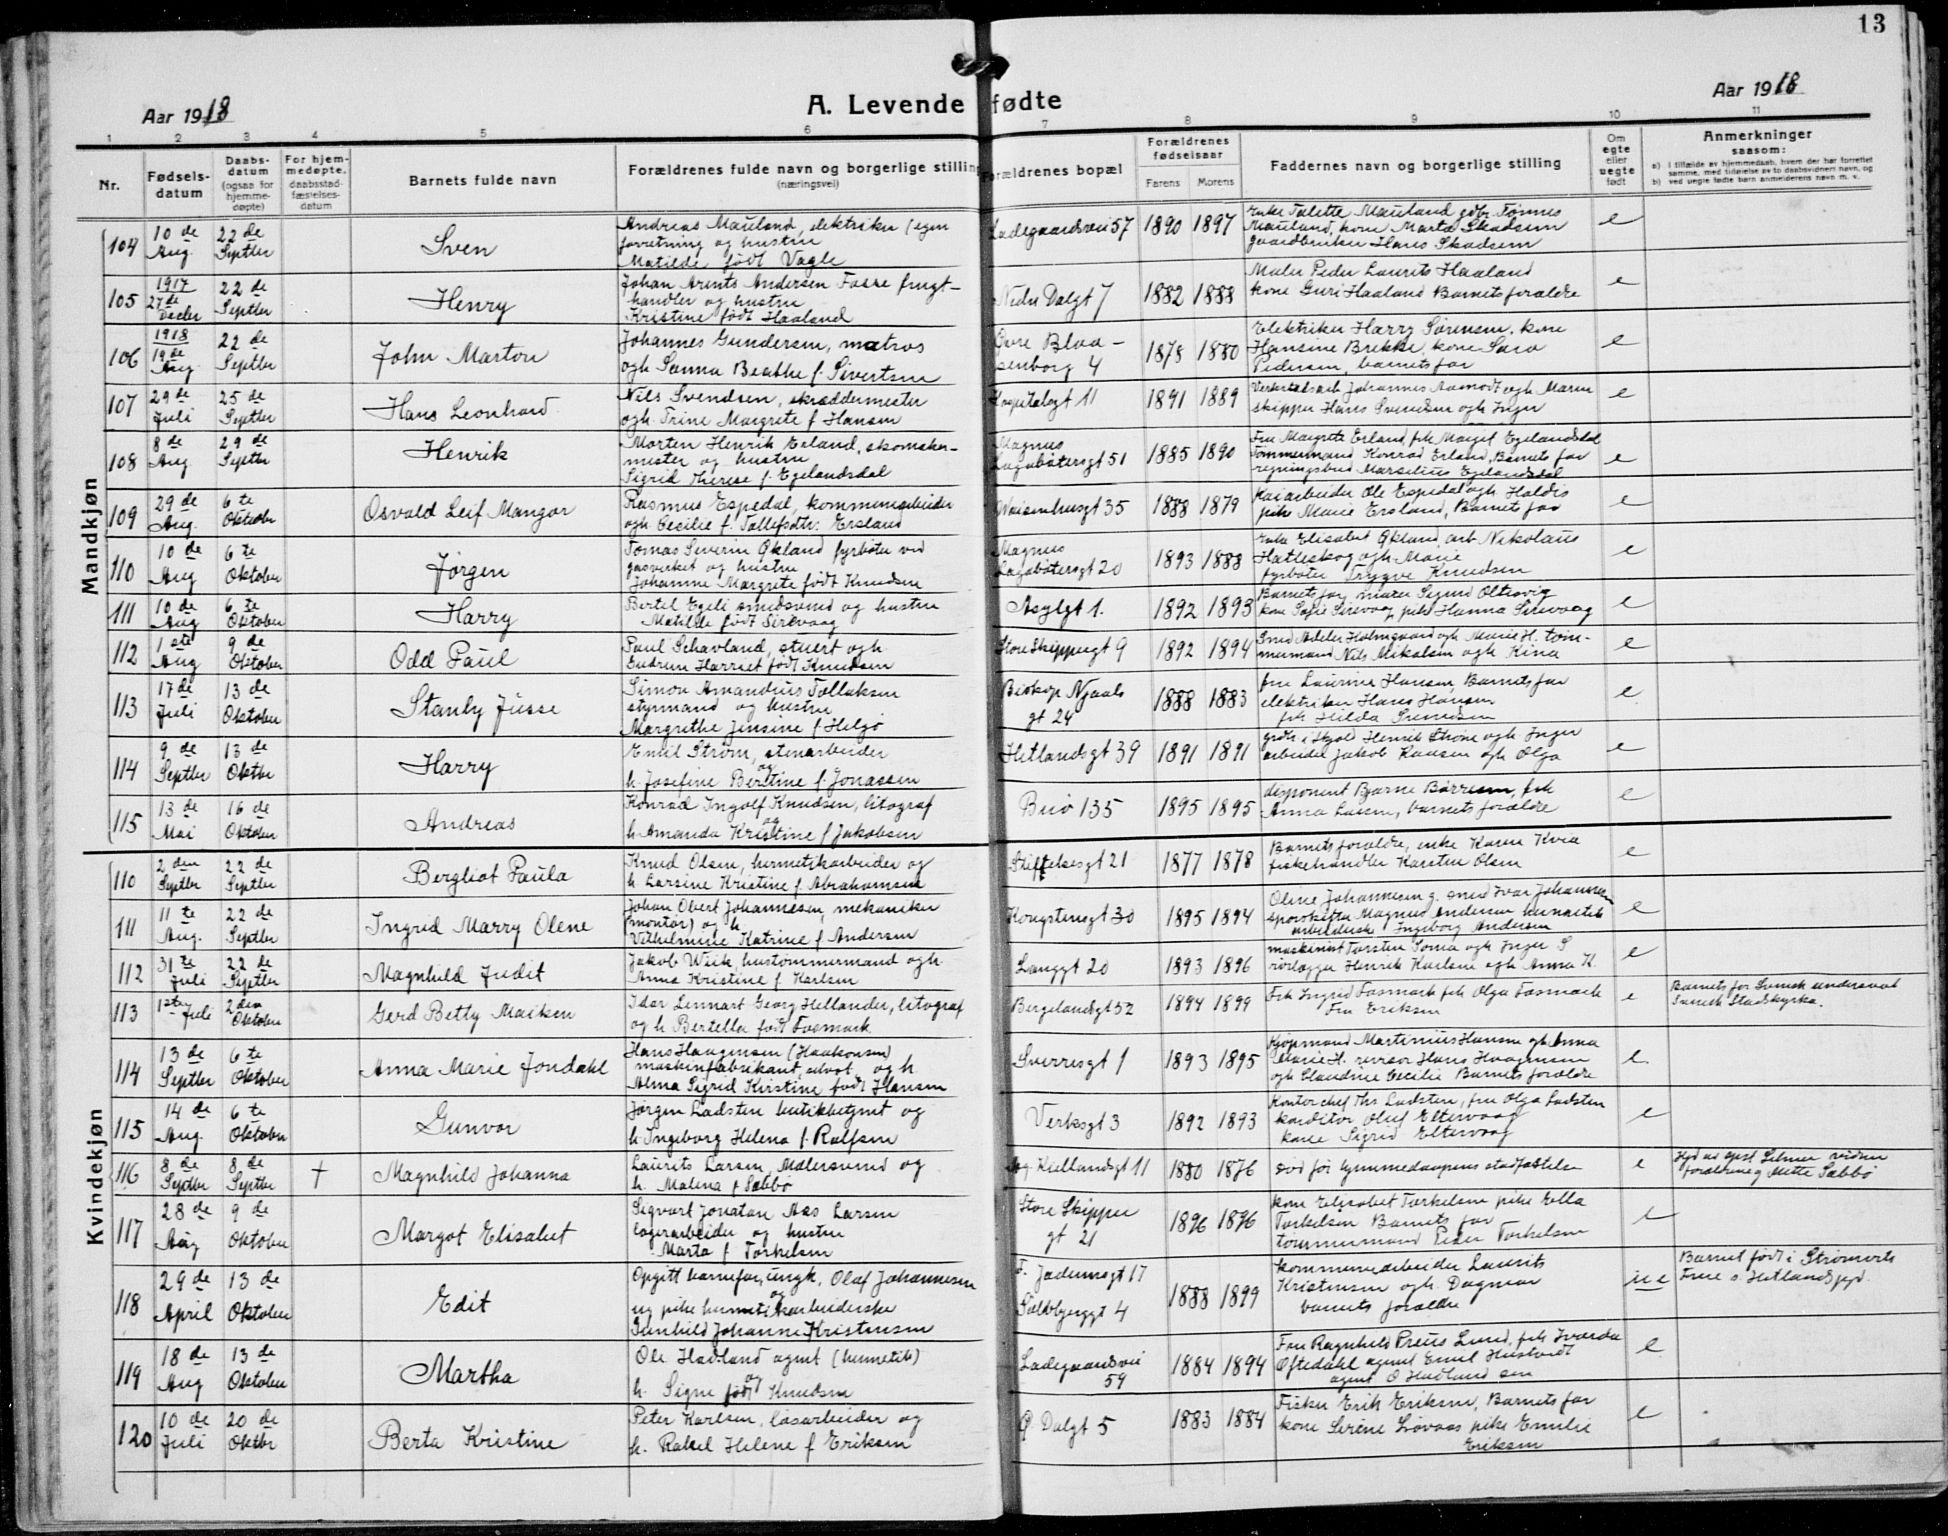 13
Aar 1918
A. Levende fødte
Aar 1918
1 2 3 4 5 6 7 8 9 10 11
Nr.
Fødsels-
datum
Daabs-
datum
(ogsaa for
hjemme-
døpte)
For hjem-
medøpte,
daabsstad-
fæstelses-
datum
Barnets fulde navn
Forældrenes fulde navn og borgerlige stilling
(næringsvei)
Forældrenes bopæl
Forældrenes
fødselsaar
Farens Morens
Faddernes navn og borgerlige stilling
Om
egte
eller
uegte
født
Anmerkninger
saasom:
a) i tilfælde av hjemmedaab, hvem der har forrettet
samme, med tidørelse av to daabsvidners navn, og
b) ved uegte fødte børn anmelderens navn m. v.
Mandkjøn
104 10de Aug. 22de Septbr Sven
Andreas Mauland, elektriker (egen
forretning og hustru
Matilde født Vagle
Ladegaardsvei 57 1890 1897
Enke Talette Mauland gdbr. Tønnes
Mauland, kone Marta Skadsem
gaardbruker Hans Skadsem
e
105 1917 27de Decbr 22de Septbr Henry
Johan Arents Andersen Fosse frugt-
handler og hustru
Kristine født Haaland
Nedre Dalgt 7 1882 1888
Maler Peder Laurits Haaland
kone Guri Haaland Barnets forældre
e
106 1918 19de Aug 22de Septbr John Marton
Johannes Gundersen, matros
ogh Sanna Beathe f. Sivertsen
Øvre Blaa-
senborg 4 1878 1880
Elektriker Harry Sørensen, kone
Hansine Brekke, kone Sara
Pedersen, barnets far
e
107 29de Juli 25de Septbr Hans Leonhard
Nils Svendsen, skræddermester
ogh. Trine Margrete f Hansen
Hospitalsgt 11 1891 1889
Verkstadsarb Johannes Aamodt ogh Maren
skipper Hans Svendsen ogh Inger
e
108 8de Aug 29de Septbr Henrik
Morten Henrik Erland, skomaker-
mester og hustru
Sigrid Therese f. Egelandsdal
Magnus
Lagabøtersgt 51 1885 1890
Fru Margrete Erland, frk Margit Egelandsdal
Tømmermand Konrad Erland, Barnets far
regningsbud Marselius Egelandsdal
e
109 29de Aug. 6te Oktober Osvald Leif Mangor
Rasmus Espedal, kommunearbeider
ogh Cecilie f. Tollefsdtr. Ersland
Waisenhusgt 35 1888 1879
Kaiarbeider Ole Espedal ogh Haldis
pike Marie Ersland, Barnets far
e
110 10de Aug 6te Oktober Jørgen
Tomas Severin Økland fyrbøter ved
gasverket og hustru
Johanne Margrete født Knudsen
Magnus
Lagabøtersgt 20 1893 1888
Enke Elisabet Økland, arb Nikolaus
Hatleskog ogh Marie
fyrbøter Trygve Knudsen
e
111 10de Aug 6te Oktober Harry
Bertel Egeli smedsvend og hustru
Matilde født Sirevaag
Asylgt 1. 1892 1893
Barnets far, maler Sigurd Oltesvig
kone Sofie Sirevaag pike Hanna Sirevaag
e
112 1ste Aug 9de Oktober Odd Paul
Paul Schavland, stuert ogh
Gudrun Harriet født Knudsen
Store Skippergt 9 1892 1894
Smed Adeler Holmgaard ogh Marie H. tøm-
mermand Nils Mikalsen ogh Kina
e
113 17de Juli 13de Oktober Stanly Jusse
Simon Amandius Tollaksen
styrmand og hustru
Margrethe Jensine f Helgø
Biskop Njaals
gt 24 1888 1883
fru Laurine Hansen, Barnets far
elektriker Hans Hansen
frk Hilda Svendsen
e
114 9de Septbr 13de Oktbr Harry
Emil Strøm, stenarbeider
og
h. Josefine Bertine f. Jonassen
Hetlandsgt 39 1891 1891
Henrik Strøm ogh Inger
arbeider Jakob Hansen ogh Olga
e
115 13de Mai 16de Oktober Andreas
Konrad Ingolf Knudsen, litograf
og
h. Amanda Kristine f Jakobsen
Buø 135 1895 1895
disponent Bjarne Børresen, frk
Anna Larsen, barnets forældre
e
Kvindekjøn
110 2den Septbr 22de Septbr Bergliot Paula
Knud Olsen, hermetikarbeider og
h. Larsine Kristine f. Abrahamsen
Stiftelsesgt 21 1877 1878
Barnets forældre, enke Karen Kvia
fiskehandler Karsten Olsen
e
111 11te Aug. 22de Septbr Ingrid Marry Olene
Johan Obert Johannesen, mekaniker
(montør) og h.
Vilhelmine Katrine f Andersen
Kongstensgt 30 1895 1894
Oline Johannesen g. smed Ivar Johannesen
Magnus Andersen hermetik
arbeiderske Ingeborg Andersen
e
112 31te Juli 22de Septbr Magnhild Judit
Jakob Weik, hustømmermand ogh.
Anna Kristine f Karlsen
Langgt 20 1893 1896
maskinist Torsten Soma ogh Inger S
rørlægger Henrik Karlsen ogh Anna K.
e
113 1ste Juli 2den Oktober Gerd Betty Maiken
Idar Lennart Georg Hellander, litograf
og h Bertella født Fosmark
Bergelandsgt 52 1894 1899
Frk Ingrid Fosmark frk Olga Fosmark
Fru Eriksen
e
Barnets far Svensk undersaat
Svensk Stadskyrka.
114 13de Septbr 6te Oktober Anna Marie Jondahl
Hans Haagensen (Haakonsen)
maskinfabrikant, og h
Alma Sigrid Kirstine født Hansen
Sverresgt 1 1893 1895
Kjøpmand Martinius Hansen ogh Anna
Marie H. revisor Hans Haagensen
ogh Claudine Cecilie Barnets forældre
e
115 14de Aug. 6te Oktober Gunvor
Jørgen Ladsten butikbetjent og
h. Ingeborg Helena f. Rolfsen
Verksgt 3 1892 1893
Kontorchef Ths Ladsten, fru Olga Ladsten
konditor Oluf Eltervaag
kone Sigrid Eltervaag
e
116 8de Septbr 8de Septbr † Magnhild Johanna
Laurits Larsen, Malersvend og
h. Malena f Sæbbø
Kiellandsgt 11 1880 1876
død før hjemmedaapens stadfæstelse
e
forældrene og Mette Sæbbø
117 28de Aug 9de Oktober Margot Elisabet
Sigvart Jonatan Aas Larsen
lagerarbeider og hustru
Marta f Torkelsen
Store Skipper
gt 21 1896 1896
kone Elisabet Torkelsen pike Ella
Torkelsen Barnets far
tømmermand Peder Torkelsen
e
118 29de April 13de Oktober Edit
Opgitt barnefar, ungk. Olaf Johannesen
og
ug pike hermetikarbeiderske
Gunhild Johanne Kristensen
F. Jadernsgt 17
Solbbjerggt 4 1888 1899
kommunearbeider Laurits
Kristensen ogh Dagmar
barnets forældre
ue
Barnet født i Strømvik
Frue s. Hetlands pgd.
119 18de Aug 13de Oktober Martha
Ole Hadland agent (hermetik)
og
h. Signe født Knudsen
Ladegaardsvei
59 1884 1894
Fru Ragnhild Preus Lund, frk Ivarda
Oftedahl agent Emil Hustvedt
agent O Hadland sen
e
120 10de Juli 20de Oktbr Berta Kristine
Peter Karlsen, løsarbeider og
h. Rakel Helene f Eriksen
Ø Dalgt 5 1883 1884
Fisker Erik Eriksen, Barnets far
kone Serine Løvaas pike Emilie
Eriksen
e